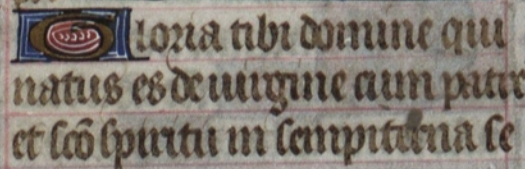 Gloria tibi domine qui
natus es de uirgine cum patre
et sco spiritu in sempiterna se